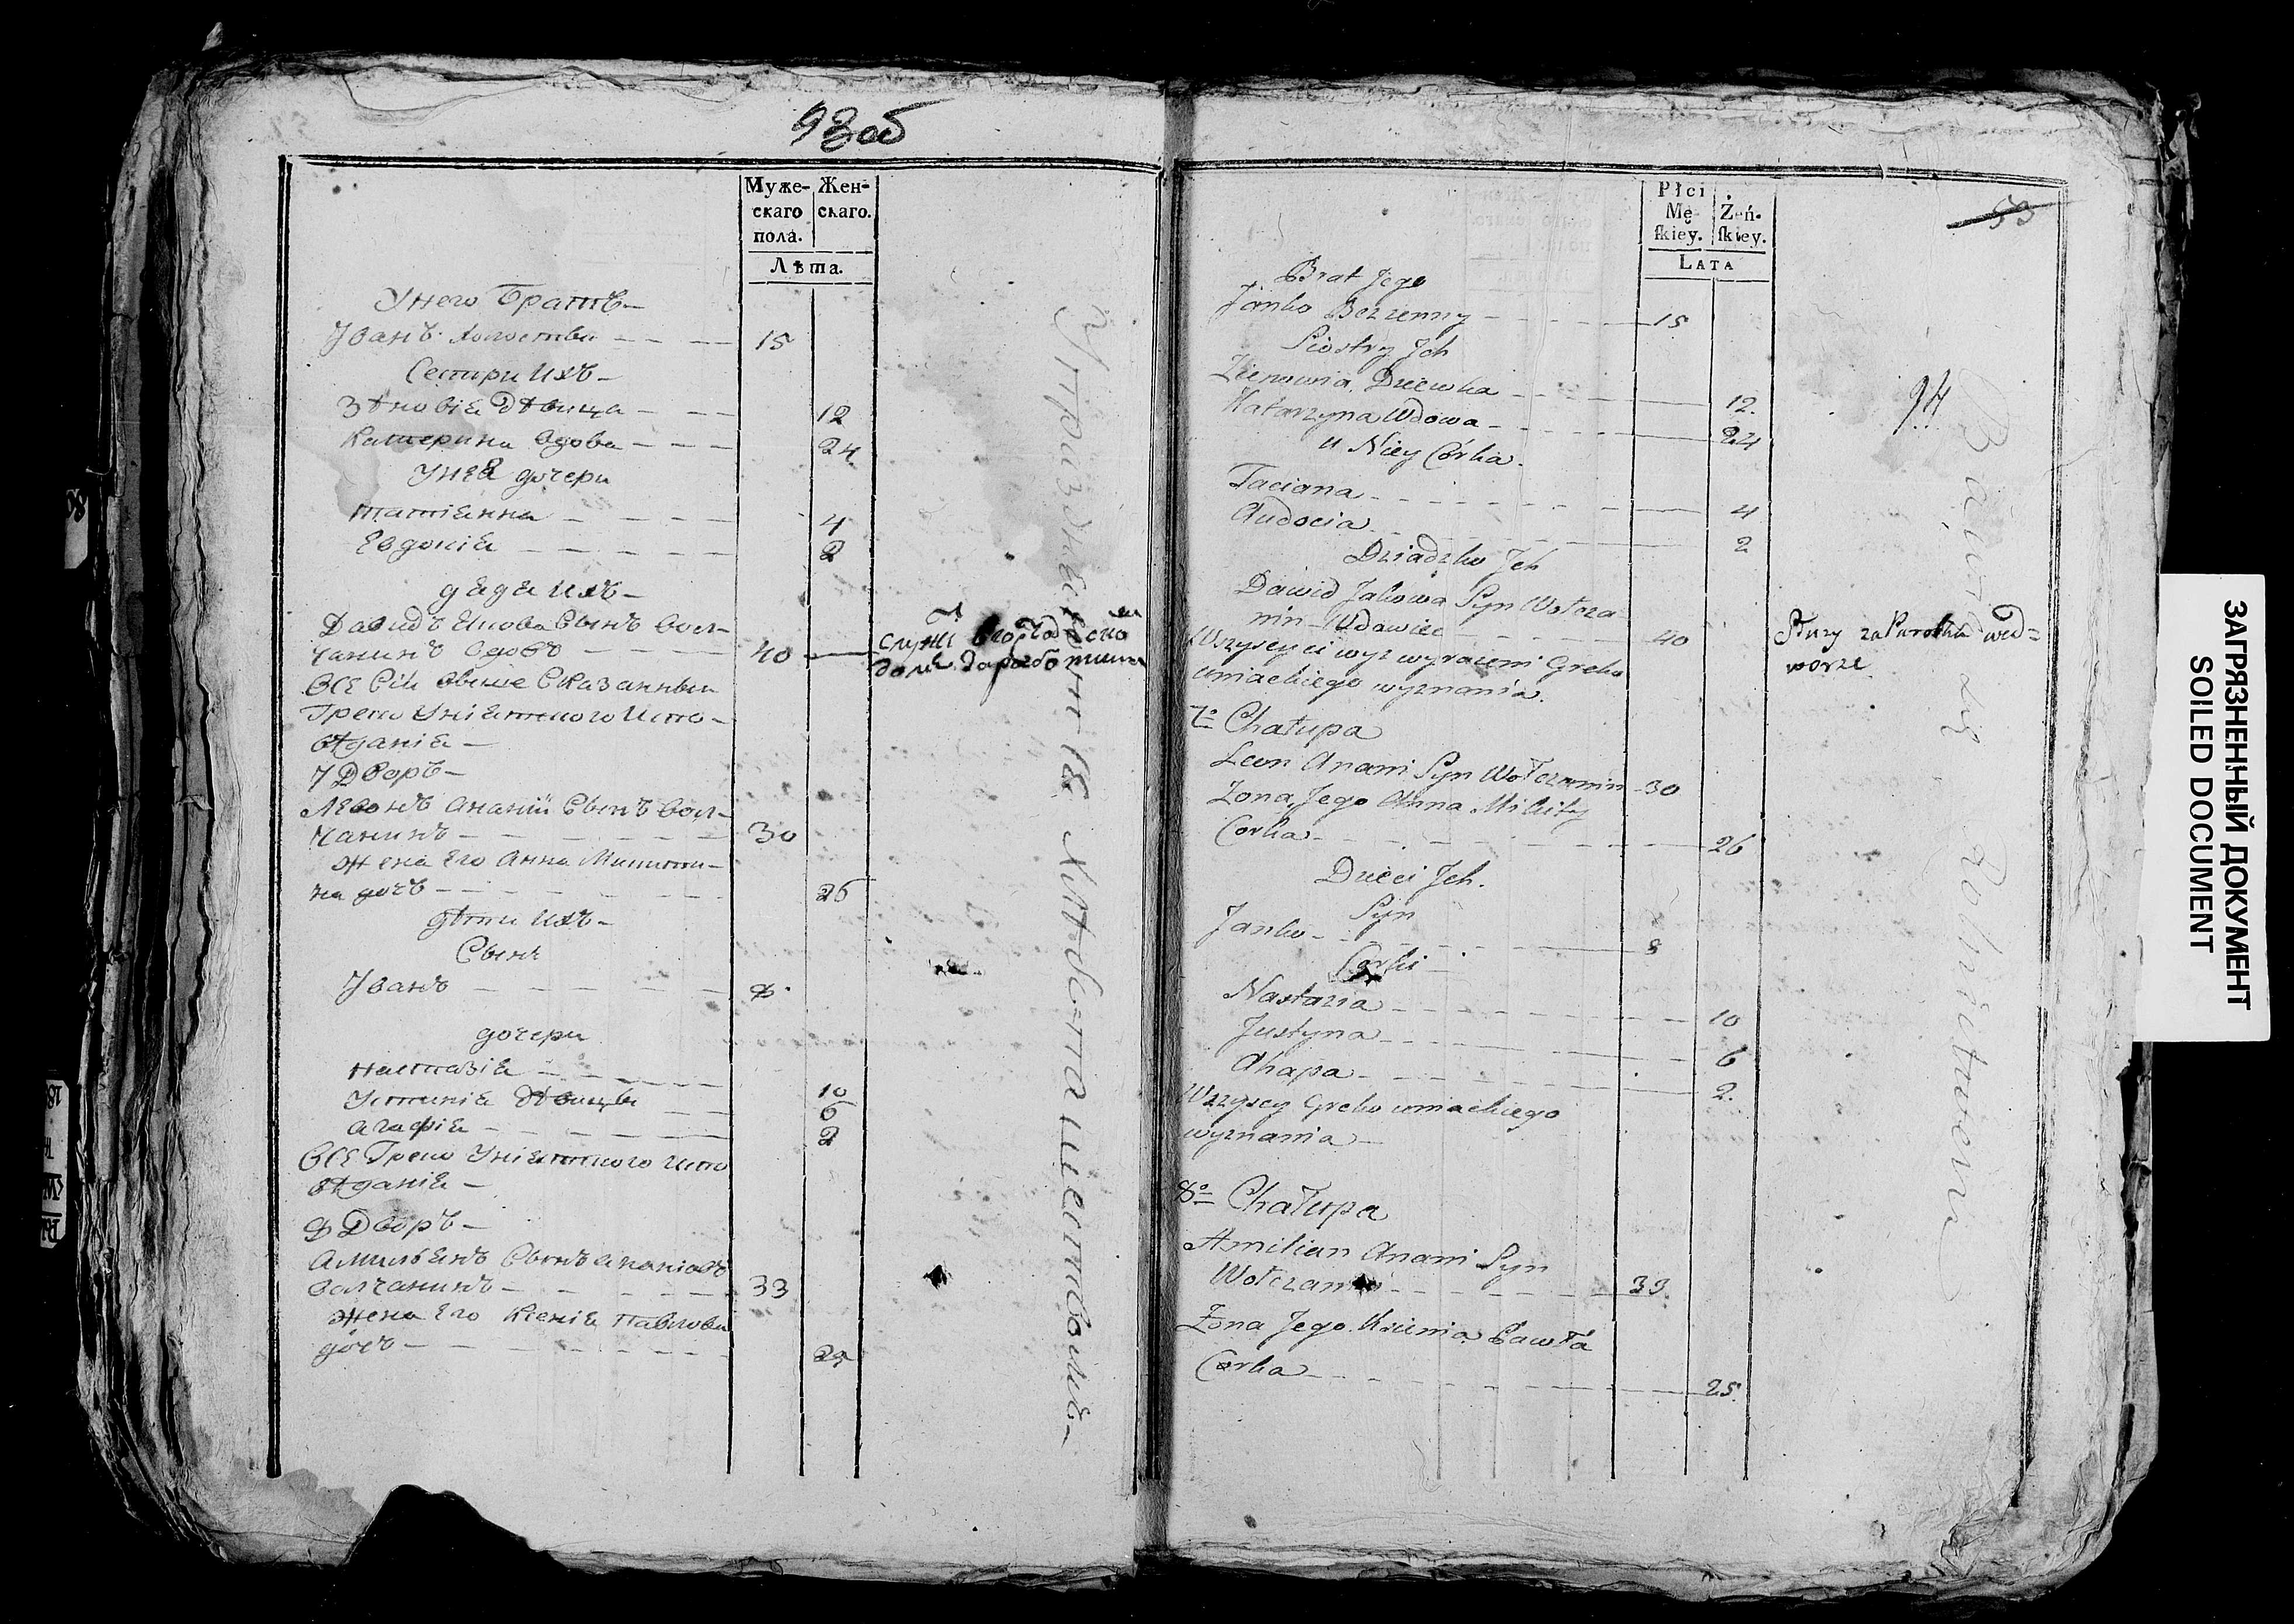 93 об
Муже-
скаго
пола.
Жен-
скаго.
Лѣта.
Унего Братъ-
Иванъ холостви 15
Сестри ихъ-
Зѣновіа дѣвица 12
Катерина вдова 24
Унея дочери
Татіанна 4
Евдокіа 2
дядя ихъ-
Давидъ Якова Сынъ Вол-
чанинъ вдовъ 40
Всѣ Сіи Свыше Сказанныи
Греко Уніатского Испо-
вѣданіа-
7 Дворъ-
Левонъ Ананіи Сынъ Вол-
чанинъ- 30
Жена Его Анна Микити-
на дочъ- 26
дѣти ихъ-
Сынъ
Иванъ 8
дочери
Настазіа 10
Устиніа дѣвицы 6
Агафіа 2
Всѣ Греко Уніатского Испо
вѣданіа-
8 Дворъ-
Амильянъ Сынъ Ананіавъ
Валчанинъ- 33
Жена Его Ксеніа Павлова
дочъ- 25
Упражняютя хлѣбопашествомъ-
Płci
Mę-
ſkiey.
Żeń-
ſkiey.
LATA
53
94
Brat Jego
Janko Bezzenny 15
Siostry Jch
Zienowia Dziewka 12.
Katarzyna Wdowa 24
u Niey Córka.
Taciana 4
Audocia 2
Dziadzko Jch
Dawid Jakowa Syn Wołcza
nin Wdowiec 40
Służy za Parobka wed=
worze.
Wszyscy ci wyz wyrazeni Greko
uniackiego wyznania.
7o Chałupa
Leon Anani Syn Wołczanin 30
Zona Jego Anna Mikity
Corka 26
Dzieci Jch.
Syn
Janko 8
Corki
Nastazia 10
Justyna 6
Ahapa 2.
Wszyscy Greko uniackiego
wyznania-
8o Chałupa
Amilian Anani Syn
Wołczanin 33.
Zona Jego Ksienia Pawła
Corka 25.
Bawią się Rolnictwem
ЗАГРЯЗНЕННЫЙ ДОКУМЕНТ
SOILED DOCUMENT